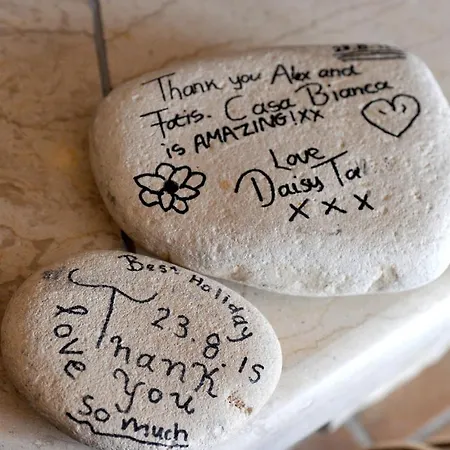 Thank you Alex and
Fotis. Casa Bianca
is AMAZING!xx
Love
Daisy
xxx
Best Holiday
23.8.15
love
Thank
you
so much